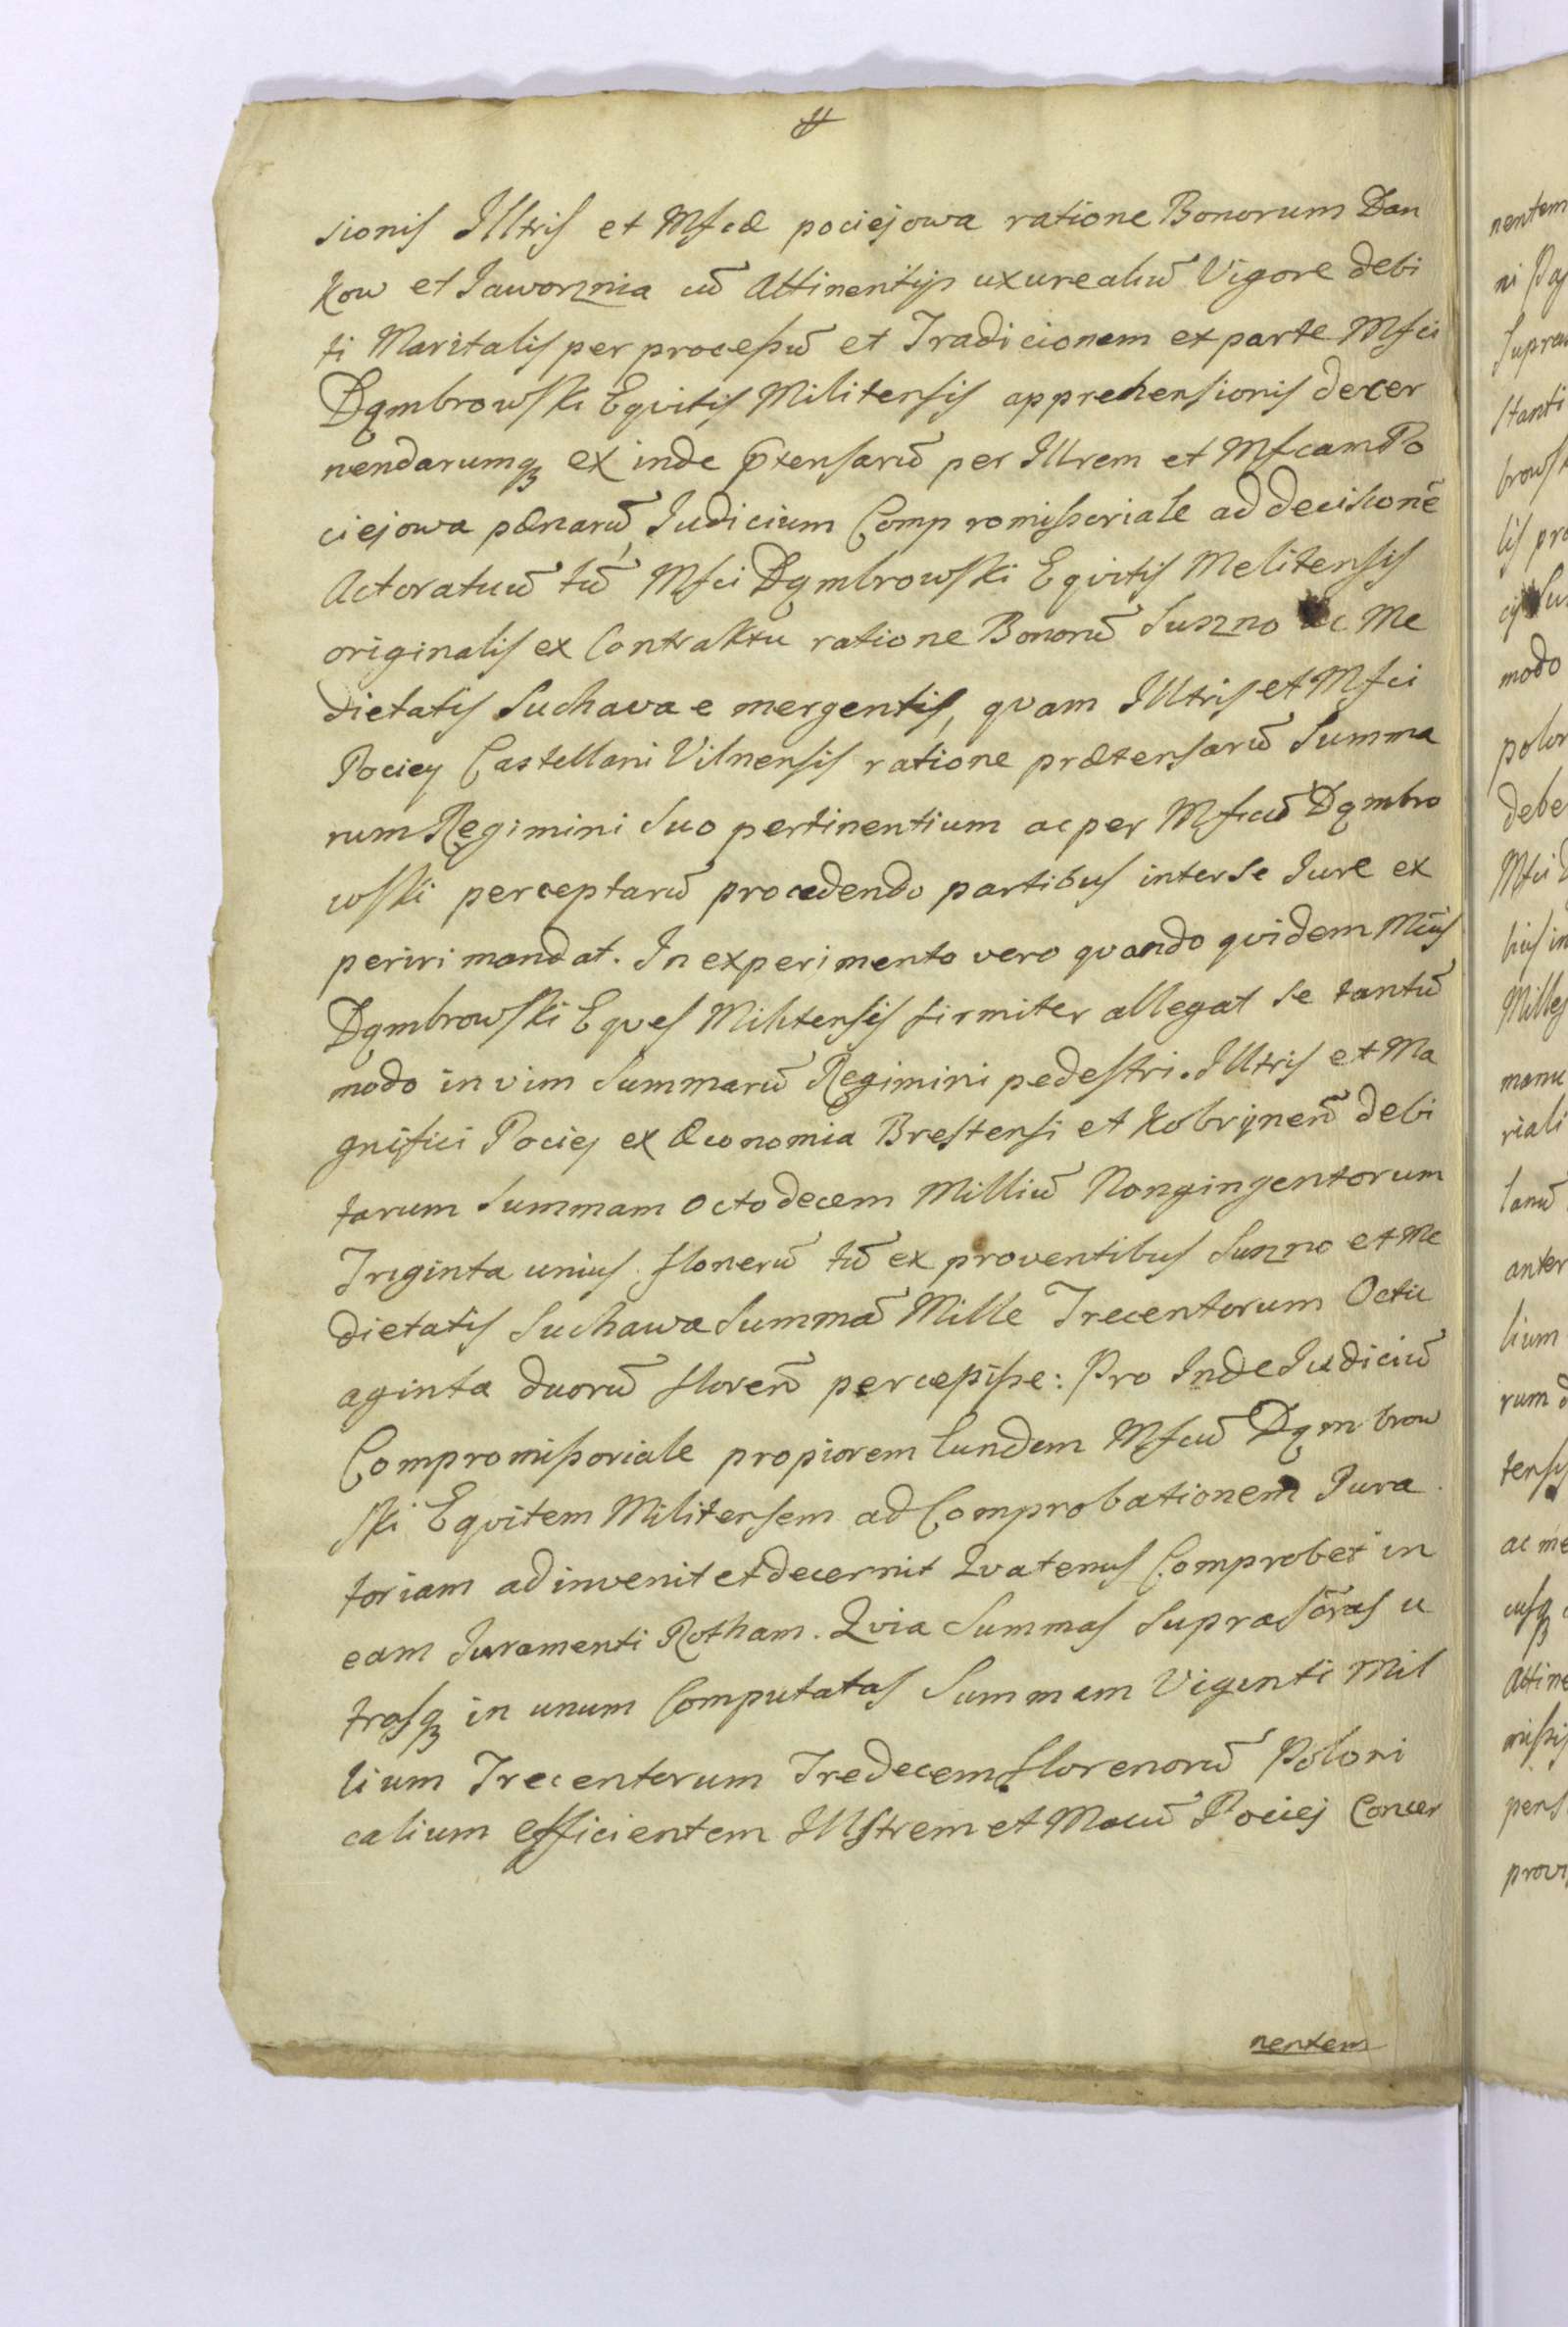 sionis Illtris et Mfcæ pociejowa ratione Bonorum Dan
kow et Jaworznia cū Attinentijs uxurealiū Vigore debi
ti Maritalis per processū et Tradicionem ex parte Mfci
Dąmbrowski Equitis Militensis apprehensionis decer
nendarumq₃ ex inde p̄tensarū per Illrem et Mfcam Po
ciejowa pænarū, Judicium Compromissoriale ad decisionē
Actoratuū tū Mfci Dąmbrowski Equitis Melitensis
originalis ex Contraktu ratione Bonorū Suzno ac Me
dietatis Suchava emergentis, quam Illtris et Mfci
Pociey Castellani Vilnensis ratione prætensarū Summa
rum Regimini Suo pertinentium ac per Mfcū Dąmbro
wski perceptarū procedendo partibus inter se Jure ex
periri mandat. In experimento vero quando quidem Mcūs
Dąmbrowski Eques Militensis firmiter allegat se tantū
modo in vim Summarū Regimini pedestri. Illtris et Ma
gnifici Pociej ex Œconomia Brestensi et Kobrynen̄ debi
tarum Summam Octodecem Milliū Nongingentorum
Triginta unius florenū tū ex proventibus Suzno et Me
dietatis Suchawa Summā Mille Trecentorum Octu
aginta duorū floren̄ percepisse: Pro Inde Judiciū
Compromissoriale propiorem Eundem Mfcū Dąmbrow
ski Equitem Militensem ad Comprobationem Jura
toriam adinvenit et decernit Quatenus Comprobet in
eam Juramenti Rotham. Quia Summas Supra Sc̄ras u
trasq₃ in unum Computatas Summam Viginti Mil
lium Trecentorum Tredecem florenorū Poloni
calium efficientem Illstrem et Mocū Pociej Concer
nentem